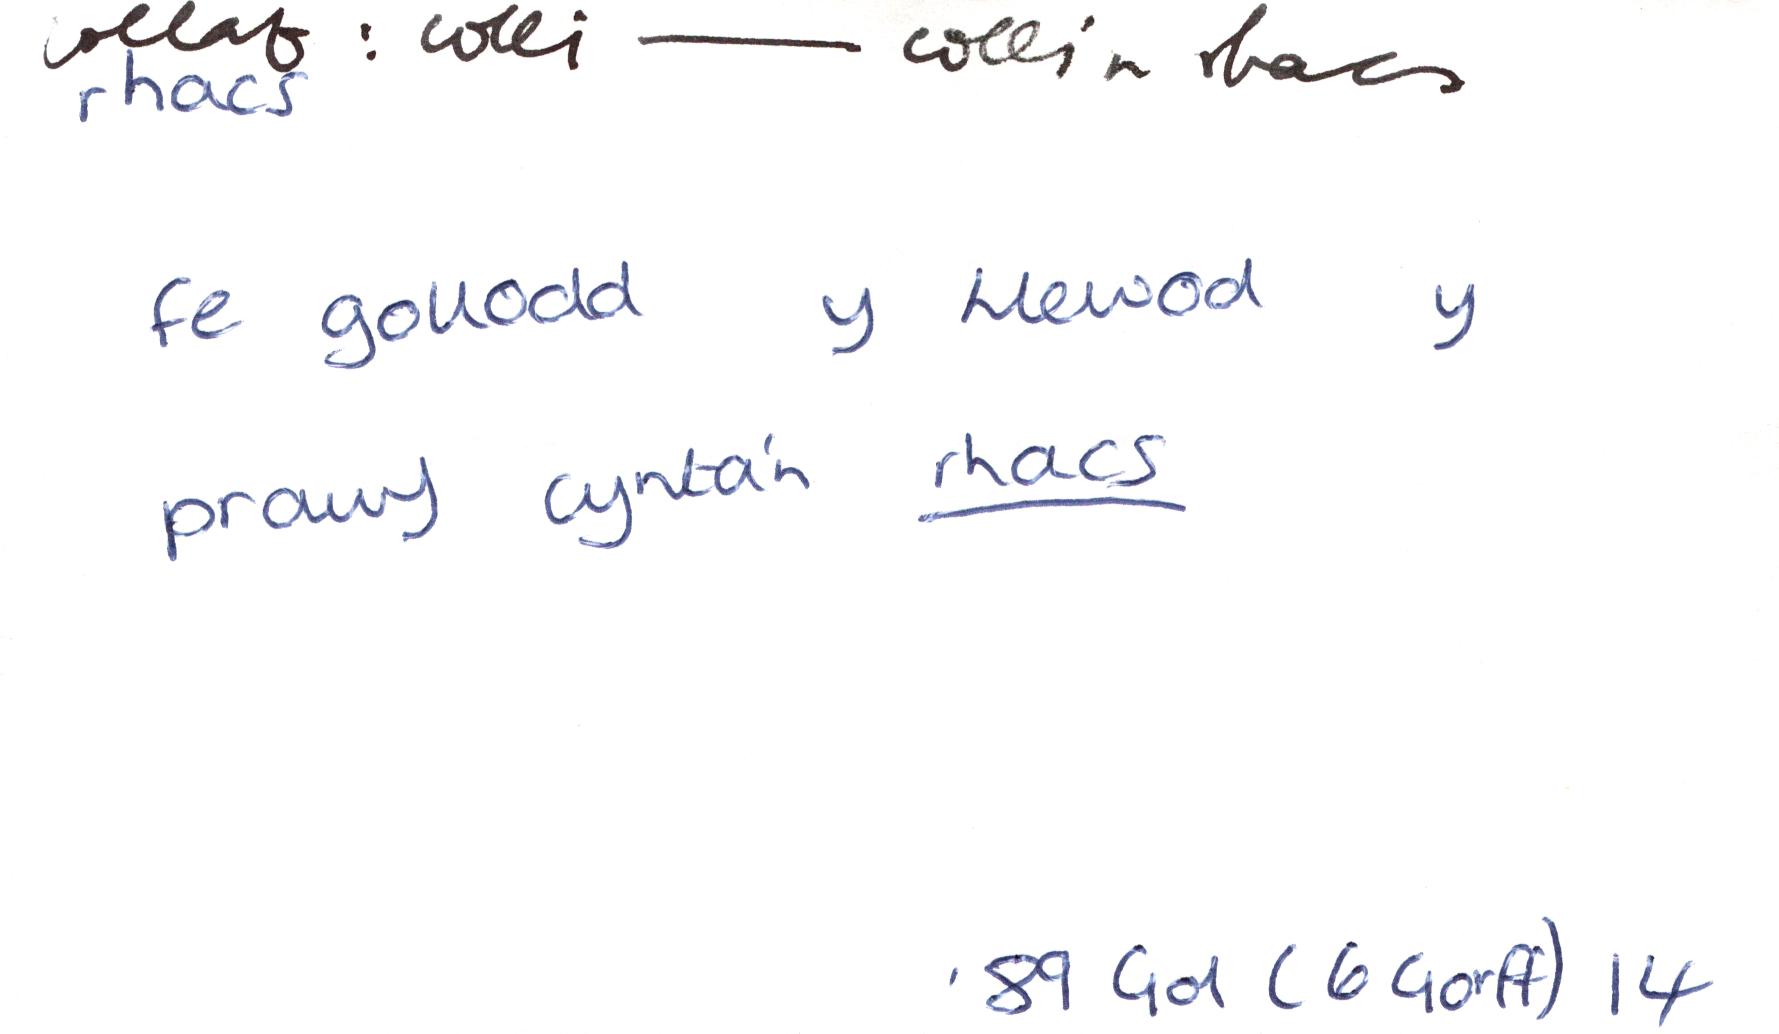 collaf : colli — colli'n rhacs
rhacs
fe gollodd y Llewod y
prawf cynta'n rhacs
'89 Gol (6 Gorff) 14